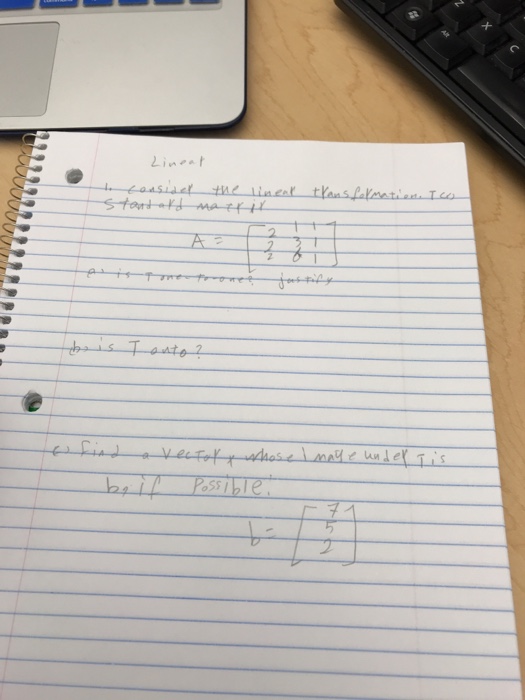 Linear
1. consider the linear transformation. T(x)
standard matrix
A = [ 2 1 1
2 3 1
2 1 ]
a. is T one-to-one? justify
b. is T onto?
c) Find a vector x whose image under T is
b, if possible.
b = [ 7
5
2 ]